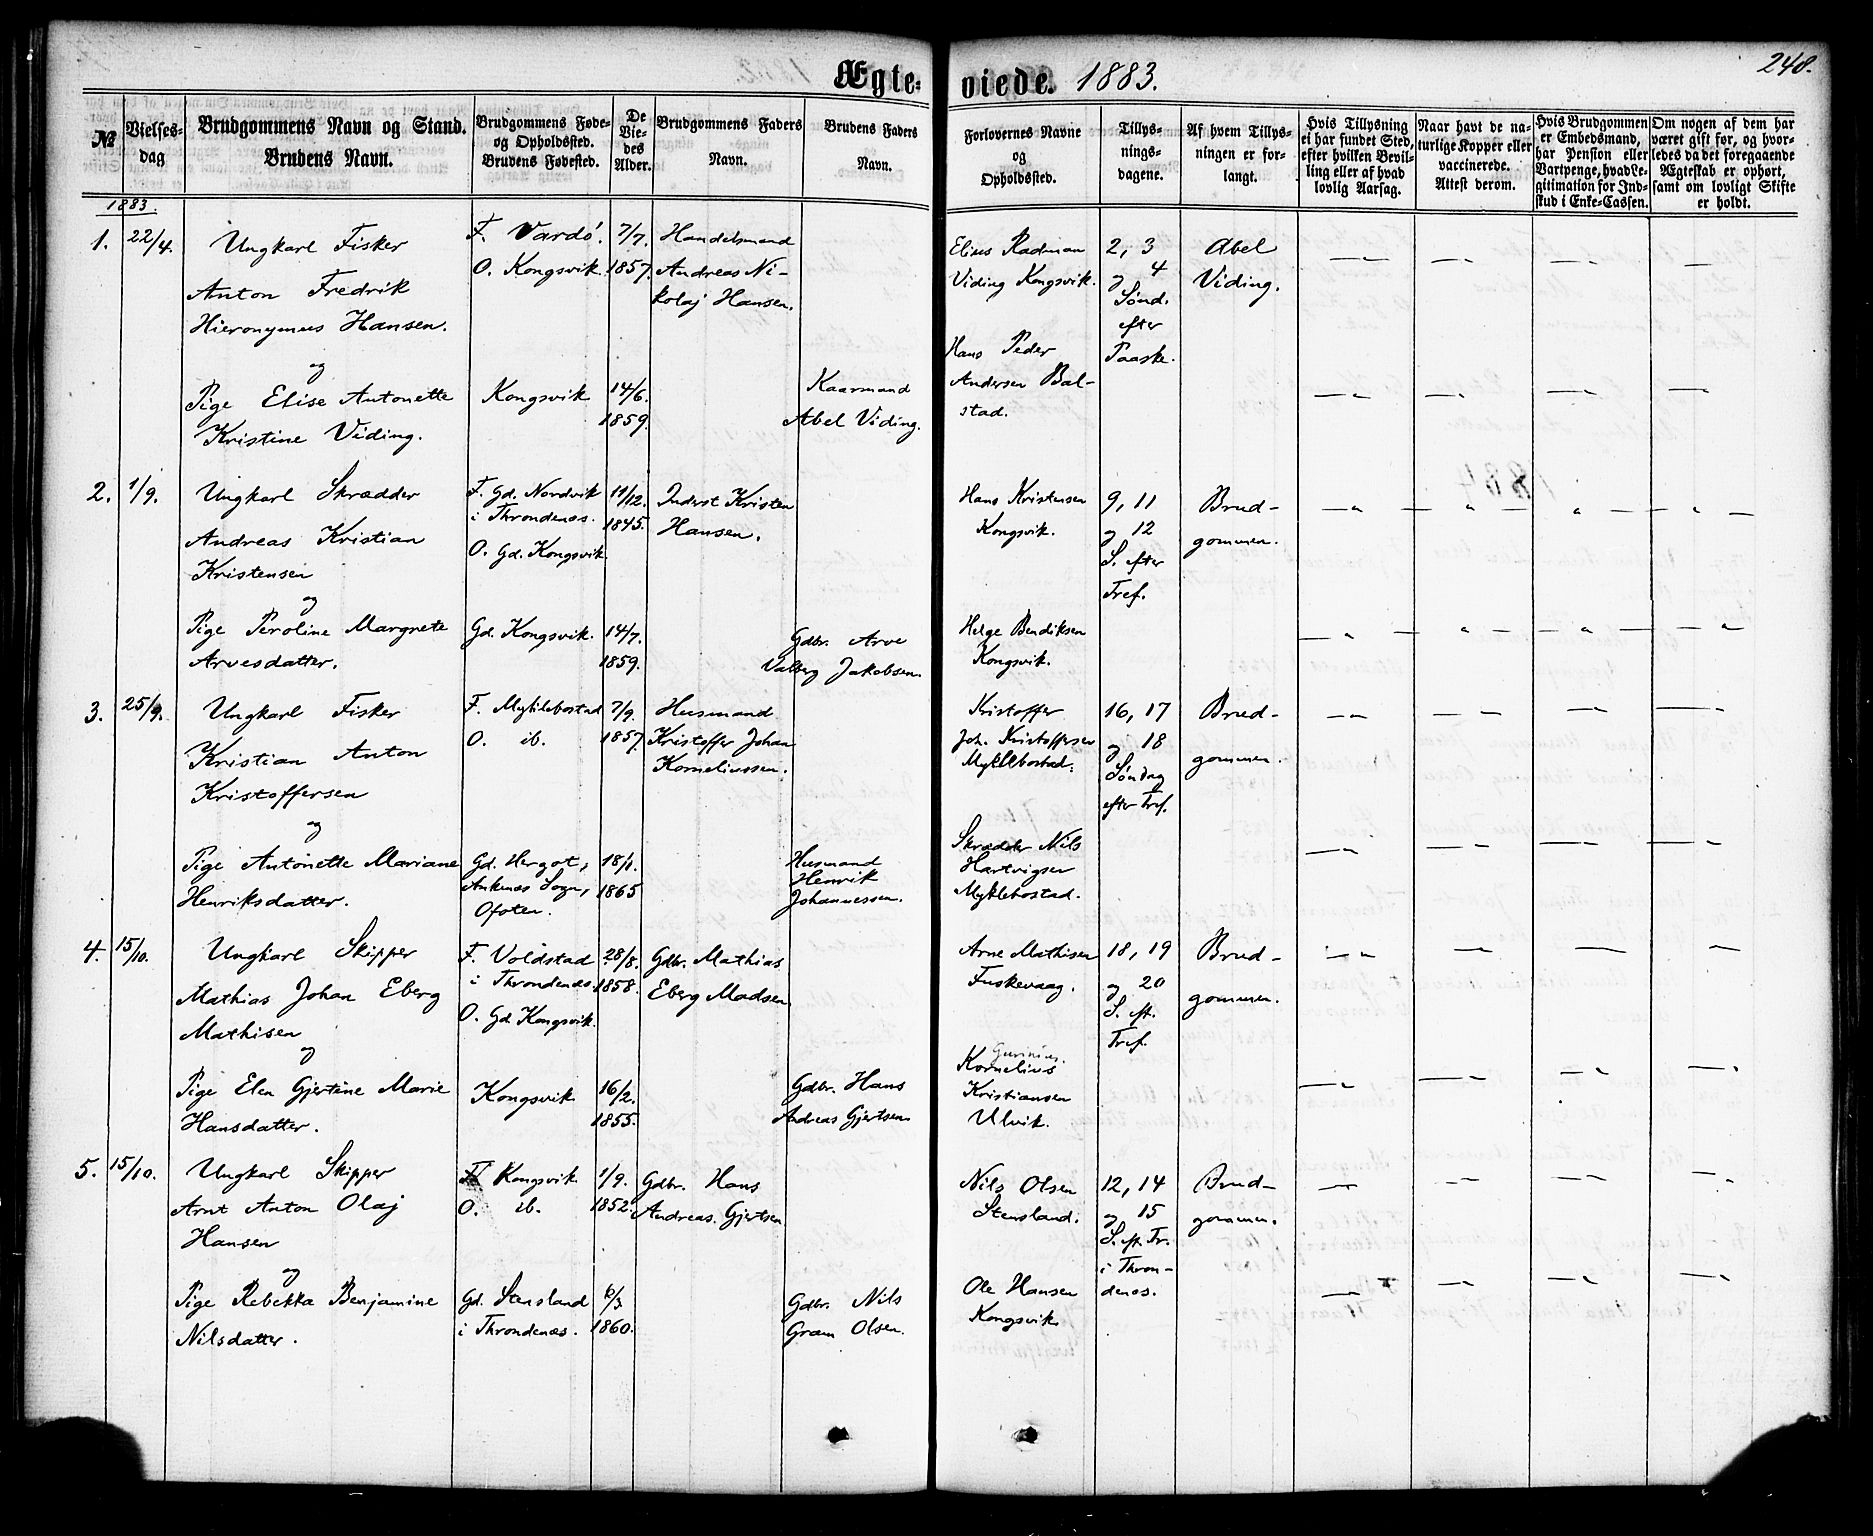 Ægteviede. 1883.
248.
№
Vielses-
dag
Brudgommens Navn og Stand.
Brudens Navn.
Brudgommens Føde-
og Opholdssted.
Brudens Fødested.
De
Vie-
des
Alder.
Brudgommens Faders
Navn.
Brudens Faders
Navn.
Forlovernes Navne
og
Opholdssted.
Tillys-
nings-
dagene.
Af hvem Tillys-
ningen er for-
langt.
Hvis Tillysning
ei har fundet Sted,
efter hvilken Bevil-
ling eller af hvad
lovlig Aarsag.
Naar havt de na-
turlige Kopper eller
vaccinerede.
Attest derom.
Hvis Brudgommen
er Embedsmand,
har Pension eller
Vartpenge, hvad Le-
gitimation for Ind-
skud i Enke-Cassen.
Om nogen af dem har
været gift før, og hvor-
ledes da det foregaaende
Ægteskab er ophørt,
samt om lovligt Skifte
er holdt.
1883.
1.
22/4.
Ungkarl Fisker
Anton Fredrik
Hieronymus Hansen.
og
Pige Elise Antonette
Kristine Viding.
F. Vardö.
O. Kongsvik.
Kongsvik
7/7.
1857.
14/6.
1859.
Handelsmand
Andreas Ni-
kolaj Hansen.
Kaarmand
Abel Viding.
Elius Radman
Viding Kongsvik.
Hans Peder
Andersen Bal-
stad.
2, 3
og 4
Sønd.
efter
Paaske.
Abel
Viding.
2.
1/9.
Ungkarl Skrædder
Andreas Kristian
Kristensen
og
Pige Peroline Margrete
Arvesdatter.
F. Gd. Nordvik
i Throndenæs.
O. Gd. Kongsvik
Gd. Kongsvik.
11/12.
1845.
14/7.
1859.
Inderst Kristen
Hansen.
Gdbr. Arve
Valberg Jakobsen.
Hans Kristensen
Kongsvik.
Helge Bendiksen
Kongsvik.
9, 11
og 12
S. efter
Tref.
Brud-
gommen.
3.
25/9.
Ungkarl Fisker
Kristian Anton
Kristoffersen
og
Pige Antonette Mariane
Henriksdatter.
F. Myklebostad
O. ib.
Gd. Hergot,
Ankenæs Sogn,
Ofoten.
7/9.
1857
18/1.
1865
Husmand
Kristoffer Johan
Korneliussen.
Husmand
Henrik
Johannessen.
Kristoffer
Joh. Kristoffersen
Myklebostad.
Skrædder Nils
Hartvigsen
Myklebostad.
16, 17
og 18
Søndag
efter Tref.
Brud-
gommen.
4.
15/10.
Ungkarl Skipper
Mathias Johan Eberg
Mathisen
og
Pige Elen Gjertine Marie
Hansdatter.
F. Voldstad
i Throndenæs
O. Gd Kongsvik.
Kongsvik
28/8.
1858.
16/2.
1855.
Gdbr. Mathias
Eberg Madsen
Gdbr. Hans
Andreas Gjertsen
Arne Mathisen
Fuskevaag.
Kornelius
Kristiansen
Ulvik.
18, 19
og 20
S. eft.
Tref.
Brud-
gommen.
5.
15/10.
Ungkarl Skipper
Arnt Anton Olaj
Hansen
og
Pige Rebekka Benjamine
Nilsdatter.
F. Kongsvik
O. ib.
Gd. Stensland
i Throndenæs.
1/9.
1852.
6/3
1860.
Gdbr. Hans
Andreas. Gjertsen
Gdbr. Nils
Gram Olsen.
Nils Olsen
Stensland.
Ole Hansen
Kongsvik
12, 14
og 15
S. eft. Tr.
i Thron-
denæs.
Brud-
gommen.